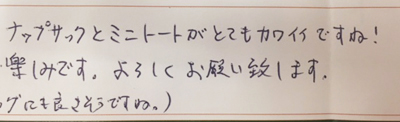 ナップサックとミニトートがとてもカワイイですね!
楽しみです。よろしくお願い致します。
グにも良さそうですね。)